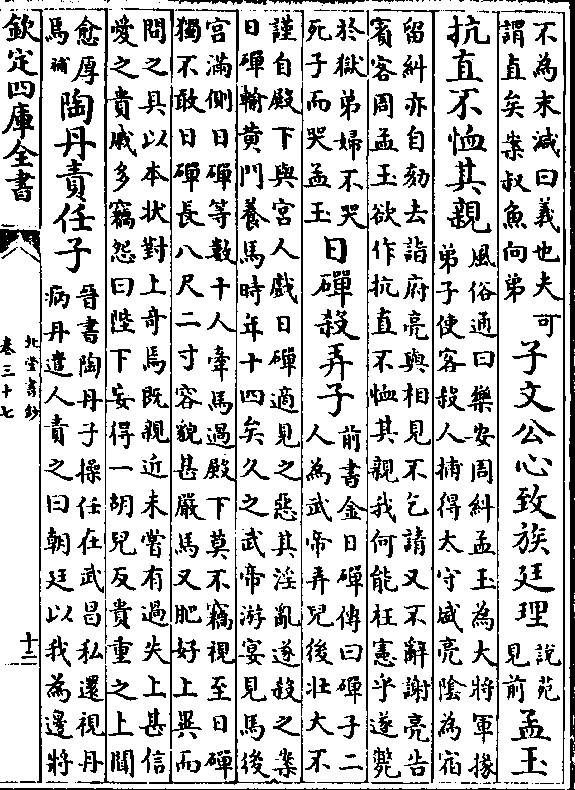 不為末減曰義也夫可
謂直矣案叔魚向弟
子文公心致族廷理
說苑
見前
孟玉
抗直不恤其親
風俗通曰樂安周糾孟玉為大將軍掾
弟子使客殺人捕得太守盛亮陰為宿
留糾亦自劾去詣府亮與相見不乞請又不辭謝亮告
賓客周孟玉欲作抗直不恤其親我何能枉憲乎遂斃
於獄弟婦不哭
死子而哭孟玉
日磾殺弄子
前書金日磾傳曰磾子二
人為武帝弄兒後壯大不
謹自殿下與宮人戲日磾適見之惡其淫亂遂殺之案
日磾輸黄門養馬時年十四矣久之武帝游宴見馬後
宮滿側日磾等數十人牽馬過殿下莫不竊視至日磾
獨不敢日磾長八尺二寸容貌甚嚴馬又肥好上異而
問之具以本狀對上奇焉既親近未嘗有過失上甚信
愛之貴戚多竊怨曰陛下妄得一胡兒反貴重之上聞
愈厚
焉補
陶丹責任子
晉書陶丹子操任在武昌私還視丹
病丹遣人責之曰朝廷以我為邊將
欽定四庫全書
北堂書鈔
卷三十七
十二